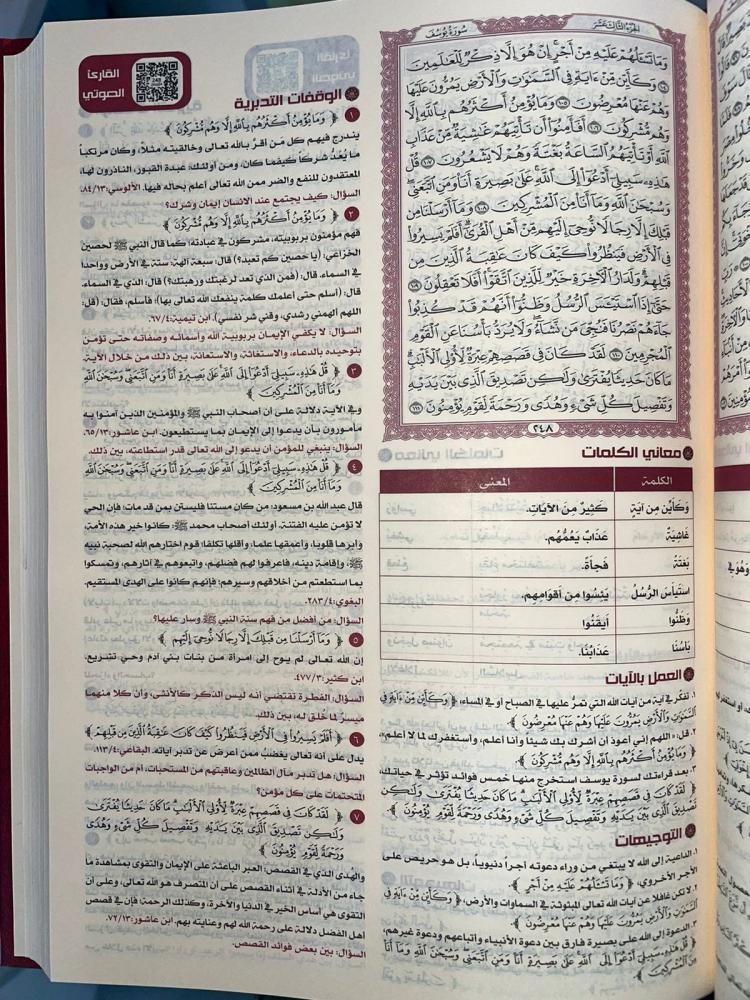 الجزء الثالث عشر
سورة يوسف
وَمَا تَسْـَٔلُهُمْ عَلَيْهِ مِنْ أَجْرٍ ۚ إِنْ هُوَ إِلَّا ذِكْرٌ لِّلْعَـٰلَمِينَ
١٠٤ وَكَأَيِّن مِّنْ ءَايَةٍ فِى ٱلسَّمَـٰوَٰتِ وَٱلْأَرْضِ يَمُرُّونَ عَلَيْهَا
وَهُمْ عَنْهَا مُعْرِضُونَ ١٠٥ وَمَا يُؤْمِنُ أَكْثَرُهُم بِٱللَّهِ إِلَّا
وَهُم مُّشْرِكُونَ ١٠٦ أَفَأَمِنُوٓا۟ أَن تَأْتِيَهُمْ غَـٰشِيَةٌ مِّنْ عَذَابِ
ٱللَّهِ أَوْ تَأْتِيَهُمُ ٱلسَّاعَةُ بَغْتَةً وَهُمْ لَا يَشْعُرُونَ ١٠٧ قُلْ
هَـٰذِهِۦ سَبِيلِىٓ أَدْعُوٓا۟ إِلَى ٱللَّهِ ۚ عَلَىٰ بَصِيرَةٍ أَنَا۠ وَمَنِ ٱتَّبَعَنِى ۖ
وَسُبْحَـٰنَ ٱللَّهِ وَمَآ أَنَا۠ مِنَ ٱلْمُشْرِكِينَ ١٠٨ وَمَآ أَرْسَلْنَا مِن
قَبْلِكَ إِلَّا رِجَالًا نُّوحِىٓ إِلَيْهِم مِّنْ أَهْلِ ٱلْقُرَىٰٓ ۗ أَفَلَمْ يَسِيرُوا۟
فِى ٱلْأَرْضِ فَيَنظُرُوا۟ كَيْفَ كَانَ عَـٰقِبَةُ ٱلَّذِينَ مِن
قَبْلِهِمْ ۗ وَلَدَارُ ٱلْـَٔاخِرَةِ خَيْرٌ لِّلَّذِينَ ٱتَّقَوْا۟ ۗ أَفَلَا تَعْقِلُونَ ١٠٩
حَتَّىٰٓ إِذَا ٱسْتَيْـَٔسَ ٱلرُّسُلُ وَظَنُّوٓا۟ أَنَّهُمْ قَدْ كُذِبُوا۟
جَآءَهُمْ نَصْرُنَا فَنُجِّىَ مَن نَّشَآءُ ۖ وَلَا يُرَدُّ بَأْسُنَا عَنِ ٱلْقَوْمِ
ٱلْمُجْرِمِينَ ١١٠ لَقَدْ كَانَ فِى قَصَصِهِمْ عِبْرَةٌ لِّأُو۟لِى ٱلْأَلْبَـٰبِ ۗ
مَا كَانَ حَدِيثًا يُفْتَرَىٰ وَلَـٰكِن تَصْدِيقَ ٱلَّذِى بَيْنَ يَدَيْهِ
وَتَفْصِيلَ كُلِّ شَىْءٍ وَهُدًى وَرَحْمَةً لِّقَوْمٍ يُؤْمِنُونَ ١١١
٢٤٨
معاني الكلمات
الكلمة المعنى
وَكَأَيِّن مِن آيَةٍ كَثِيرٌ مِنَ الآيَاتِ.
غَاشِيَةٌ عَذَابٌ يَعُمُّهُمْ.
بَغْتَةً فَجْأَةً.
اسْتَيْأَسَ الرُّسُلُ يَئِسُوا مِن أَقْوَامِهِم.
وَظَنُّوا أَيْقَنُوا
بَأْسُنَا عَذَابُنَا.
العمل بالآيات
١. تفكر في آية من آيات الله التي تمرُّ عليها في الصباح أو في المساء، ﴿ وَكَأَيِّن مِّنْ ءَايَةٍ فِى
ٱلسَّمَـٰوَٰتِ وَٱلْأَرْضِ يَمُرُّونَ عَلَيْهَا وَهُمْ عَنْهَا مُعْرِضُونَ ﴾.
٢. قل: «اللهم إني أعوذ بك أن أشرك بك شيئاً وأنا أعلم، وأستغفرك لما لا أعلم»،
﴿ وَمَا يُؤْمِنُ أَكْثَرُهُم بِٱللَّهِ إِلَّا وَهُم مُّشْرِكُونَ ﴾.
٣. بعد قراءتك لسورة يوسف استخرج منها خمس فوائد تؤثر في حياتك،
﴿ لَقَدْ كَانَ فِى قَصَصِهِمْ عِبْرَةٌ لِّأُو۟لِى ٱلْأَلْبَـٰبِ ۗ مَا كَانَ حَدِيثًا يُفْتَرَىٰ وَلَـٰكِن
تَصْدِيقَ ٱلَّذِى بَيْنَ يَدَيْهِ وَتَفْصِيلَ كُلِّ شَىْءٍ وَهُدًى وَرَحْمَةً لِّقَوْمٍ يُؤْمِنُونَ ﴾.
التوجيهات
١. الداعية إلى الله لا يبتغي من وراء دعوته أجراً دنيوياً، بل هو حريص على
الأجر الأخروي، ﴿ وَمَا تَسْـَٔلُهُمْ عَلَيْهِ مِنْ أَجْرٍ ﴾.
٢. لا تكن غافلا عن آيات الله تعالى المبثوثة في السماوات والأرض، ﴿ وَكَأَيِّن مِّنْ ءَايَةٍ فِى
ٱلسَّمَـٰوَٰتِ وَٱلْأَرْضِ يَمُرُّونَ عَلَيْهَا وَهُمْ عَنْهَا مُعْرِضُونَ ﴾.
٣. الدعوة إلى الله على بصيرة فارق بين دعوة الأنبياء وأتباعهم ودعوة غيرهم،
﴿ قُلْ هَـٰذِهِۦ سَبِيلِىٓ أَدْعُوٓا۟ إِلَى ٱللَّهِ ۚ عَلَىٰ بَصِيرَةٍ أَنَا۠ وَمَنِ ٱتَّبَعَنِى ۖ وَسُبْحَـٰنَ ٱللَّهِ وَمَآ أَنَا۠
مِنَ ٱلْمُشْرِكِينَ ﴾.
القارئ
الصوتي
الوقفات التدبرية
١ ﴿ وَمَا يُؤْمِنُ أَكْثَرُهُم بِٱللَّهِ إِلَّا وَهُم مُّشْرِكُونَ ﴾
يندرج فيهم كل من أقر بالله تعالى وخالقيته مثلاً، وكان مرتكباً
ما يُعَدُّ شركاً كيفما كان، ومن أولئك: عبدة القبور، الناذرون لها،
المعتقدون للنفع والضر ممن الله تعالى أعلم بحاله فيها. الألوسي: ٨٤/١٣.
السؤال: كيف يجتمع عند الإنسان إيمان وشرك؟
٢ ﴿ وَمَا يُؤْمِنُ أَكْثَرُهُم بِٱللَّهِ إِلَّا وَهُم مُّشْرِكُونَ ﴾
فهم مؤمنون بربوبيته، مشركون في عبادته؛ كما قال النبي ﷺ لحصين
الخزاعي: (يا حصين كم تعبد؟) قال: سبعة آلهة: ستة في الأرض وواحداً
في السماء. قال: (فمن الذي تعد لرغبتك ورهبتك؟) قال: الذي في السماء.
قال: (أسلم حتى أعلمك كلمة ينفعك الله تعالى بها)؛ فأسلم، فقال: (قل:
اللهم ألهمني رشدي، وقني شر نفسي). ابن تيمية: ٦٧/٤.
السؤال: لا يكفي الإيمان بربوبية الله وأسمائه وصفاته حتى تؤمن
بتوحيده بالدعاء، والاستغاثة، والاستعانة، بين ذلك من خلال الآية.
٣ ﴿ قُلْ هَـٰذِهِۦ سَبِيلِىٓ أَدْعُوٓا۟ إِلَى ٱللَّهِ ۚ عَلَىٰ بَصِيرَةٍ أَنَا۠ وَمَنِ ٱتَّبَعَنِى ۖ وَسُبْحَـٰنَ ٱللَّهِ
وَمَآ أَنَا۠ مِنَ ٱلْمُشْرِكِينَ ﴾
وفي الآية دلالة على أن أصحاب النبي ﷺ والمؤمنين الذين آمنوا به
مأمورون بأن يدعوا إلى الإيمان بما يستطيعون. ابن عاشور: ٦٥/١٣.
السؤال: ينبغي للمؤمن أن يدعو إلى الله تعالى قدر استطاعته، بين ذلك.
٤ ﴿ قُلْ هَـٰذِهِۦ سَبِيلِىٓ أَدْعُوٓا۟ إِلَى ٱللَّهِ ۚ عَلَىٰ بَصِيرَةٍ أَنَا۠ وَمَنِ ٱتَّبَعَنِى ۖ وَسُبْحَـٰنَ ٱللَّهِ
وَمَآ أَنَا۠ مِنَ ٱلْمُشْرِكِينَ ﴾
قال عبد الله بن مسعود: من كان مستناً فليستن بمن قد مات؛ فإن الحي
لا تؤمن عليه الفتنة. أولئك أصحاب محمد ﷺ؛ كانوا خير هذه الأمة،
وأبرها قلوبا، وأعمقها علما، وأقلها تكلفا؛ قوم اختارهم الله لصحبة نبيه
ﷺ، وإقامة دينه، فاعرفوا لهم فضلهم، واتبعوهم في آثارهم، وتمسكوا
بما استطعتم من أخلاقهم وسيرهم؛ فإنهم كانوا على الهدى المستقيم.
البغوي: ٢٨٣/٤.
السؤال: من أفضل من فهم سنة النبي ﷺ وسار عليها؟
٥ ﴿ وَمَآ أَرْسَلْنَا مِن قَبْلِكَ إِلَّا رِجَالًا نُّوحِىٓ إِلَيْهِم ﴾
إن الله تعالى لم يوح إلى امرأة من بنات بني آدم وحي تشريع.
ابن كثير: ٤٧٧/٣.
السؤال: الفطرة تقتضي أنه ليس الذكر كالأنثى، وأن كلا منهما
ميسرٌ لما خُلق له، بين ذلك.
٦ ﴿ أَفَلَمْ يَسِيرُوا۟ فِى ٱلْأَرْضِ فَيَنظُرُوا۟ كَيْفَ كَانَ عَـٰقِبَةُ ٱلَّذِينَ مِن قَبْلِهِمْ ﴾
يدل على أنه تعالى يغضب ممن أعرض عن تدبر آياته. البقاعي: ١١٣/٤.
السؤال: هل تدبر مآل الظالمين وعاقبتهم من المستحبات، أم من الواجبات
المتحتمات على كل مؤمن؟
٧ ﴿ لَقَدْ كَانَ فِى قَصَصِهِمْ عِبْرَةٌ لِّأُو۟لِى ٱلْأَلْبَـٰبِ ۗ مَا كَانَ حَدِيثًا يُفْتَرَىٰ
وَلَـٰكِن تَصْدِيقَ ٱلَّذِى بَيْنَ يَدَيْهِ وَتَفْصِيلَ كُلِّ شَىْءٍ وَهُدًى
وَرَحْمَةً لِّقَوْمٍ يُؤْمِنُونَ ﴾
والهدى الذي في القصص: العبر الباعثة على الإيمان والتقوى بمشاهدة ما
جاء من الأدلة في أثناء القصص على أن المتصرف هو الله تعالى، وعلى أن
التقوى هي أساس الخير في الدنيا والآخرة، وكذلك الرحمة؛ فإن في قصص
أهل الفضل دلالة على رحمة الله لهم وعنايته بهم. ابن عاشور: ٧٢/١٣.
السؤال: بين بعض فوائد القصص.